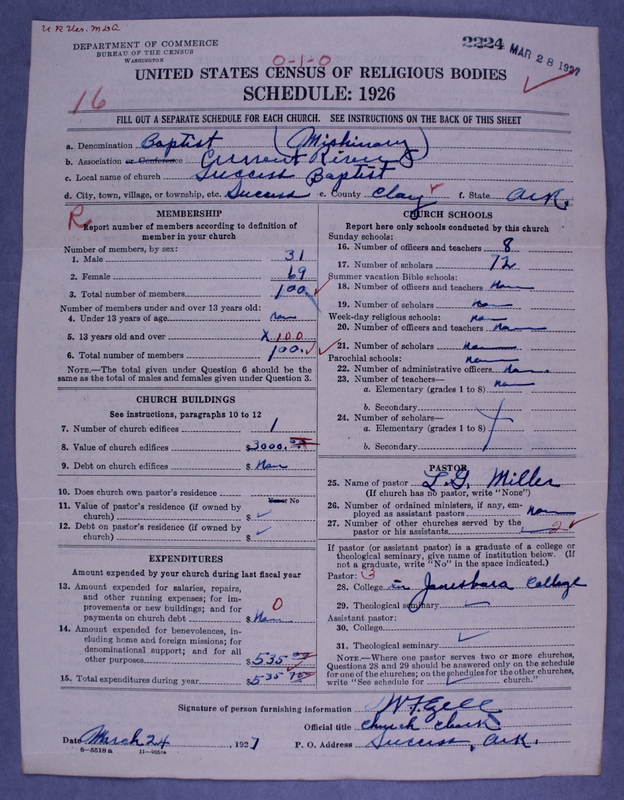 DEPARTMENT OF COMMERCE
BUREAU OF THE CENSUS
WASHINGTON
2224 MAR 28 1927
0-1-0
UNITED STATES CENSUS OF RELIGIOUS BODIES
16
SCHEDULE: 1926
FILL OUT A SEPARATE SCHEDULE FOR EACH CHURCH. SEE INSTRUCTIONS ON THE BACK OF THIS SHEET
a. Denomination Baptist (Missionary)
b. Association or Conference Current River
c. Local name of church Success Baptist
d. City, town, village, or township, etc. Success e. County Clay f. State Ark.
R
MEMBERSHIP
Report number of members according to definition of
member in your church
Number of members, by sex:
1. Male 31
2. Female 69
3. Total number of members 100
Number of members under and over 13 years old:
4. Under 13 years of age None
5. 13 years old and over X 100
6. Total number of members 100
NOTE.—The total given under Question 6 should be the
same as the total of males and females given under Question 3.
CHURCH BUILDINGS
See instructions, paragraphs 10 to 12
7. Number of church edifices 1
8. Value of church edifices $3000.00
9. Debt on church edifices $ None
10. Does church own pastor's residence
Yes or No
11. Value of pastor's residence (if owned by
church) $
12. Debt on pastor's residence (if owned by
church) $
EXPENDITURES
Amount expended by your church during last fiscal year
13. Amount expended for salaries, repairs,
and other running expenses; for im-
provements or new buildings; and for
payments on church debt $ None 0
14. Amount expended for benevolences, in-
cluding home and foreign missions; for
denominational support; and for all
other purposes $535.00
15. Total expenditures during year $535.00
CHURCH SCHOOLS
Report here only schools conducted by this church
Sunday schools:
16. Number of officers and teachers 8
17. Number of scholars 72
Summer vacation Bible schools:
18. Number of officers and teachers None
19. Number of scholars None
Week-day religious schools: None
20. Number of officers and teachers None
21. Number of scholars None
Parochial schools: None
22. Number of administrative officers None
23. Number of teachers—
a. Elementary (grades 1 to 8) None
b. Secondary
24. Number of scholars—
a. Elementary (grades 1 to 8)
b. Secondary
PASTOR
25. Name of pastor L. G. Miller
(If church has no pastor, write "None")
26. Number of ordained ministers, if any, em-
ployed as assistant pastors None
27. Number of other churches served by the
pastor or his assistants 2
If pastor (or assistant pastor) is a graduate of a college or
theological seminary, give name of institution below. (If
not a graduate, write "No" in the space indicated.)
Pastor:
28. College in Jonesboro College
29. Theological seminary
Assistant pastor:
30. College
31. Theological seminary
NOTE.—Where one pastor serves two or more churches,
Questions 28 and 29 should be answered only on the schedule
for one of the churches; on the schedules for the other churches,
write "See schedule for church."
Signature of person furnishing information W. T. Gill
Official title Church Clerk
Date March 24, 1927 P. O. Address Success, Ark.